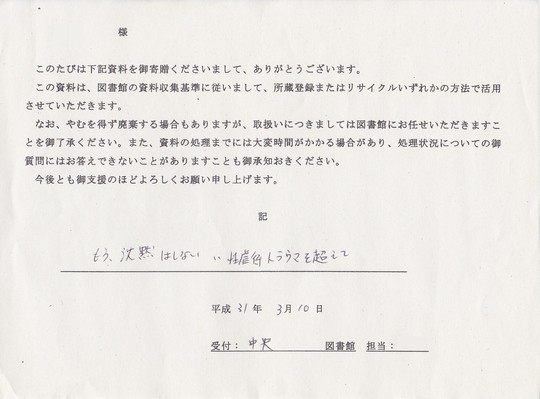 様
このたびは下記資料を御寄贈くださいまして、ありがとうございます。
この資料は、図書館の資料収集基準に従いまして、所蔵登録またはリサイクルいずれかの方法で活用
させていただきます。
なお、やむを得ず廃棄する場合もありますが、取扱いにつきましては図書館にお任せいただきますこ
とを御了承ください。また、資料の処理までには大変時間がかかる場合があり、処理状況についての御
質問にはお答えできないことがありますことも御承知おきください。
今後とも御支援のほどよろしくお願い申し上げます。
記
もう、沈黙はしない 性虐待トラウマを超えて
平成 31 年 3 月 10 日
受付：中央 図書館 担当：